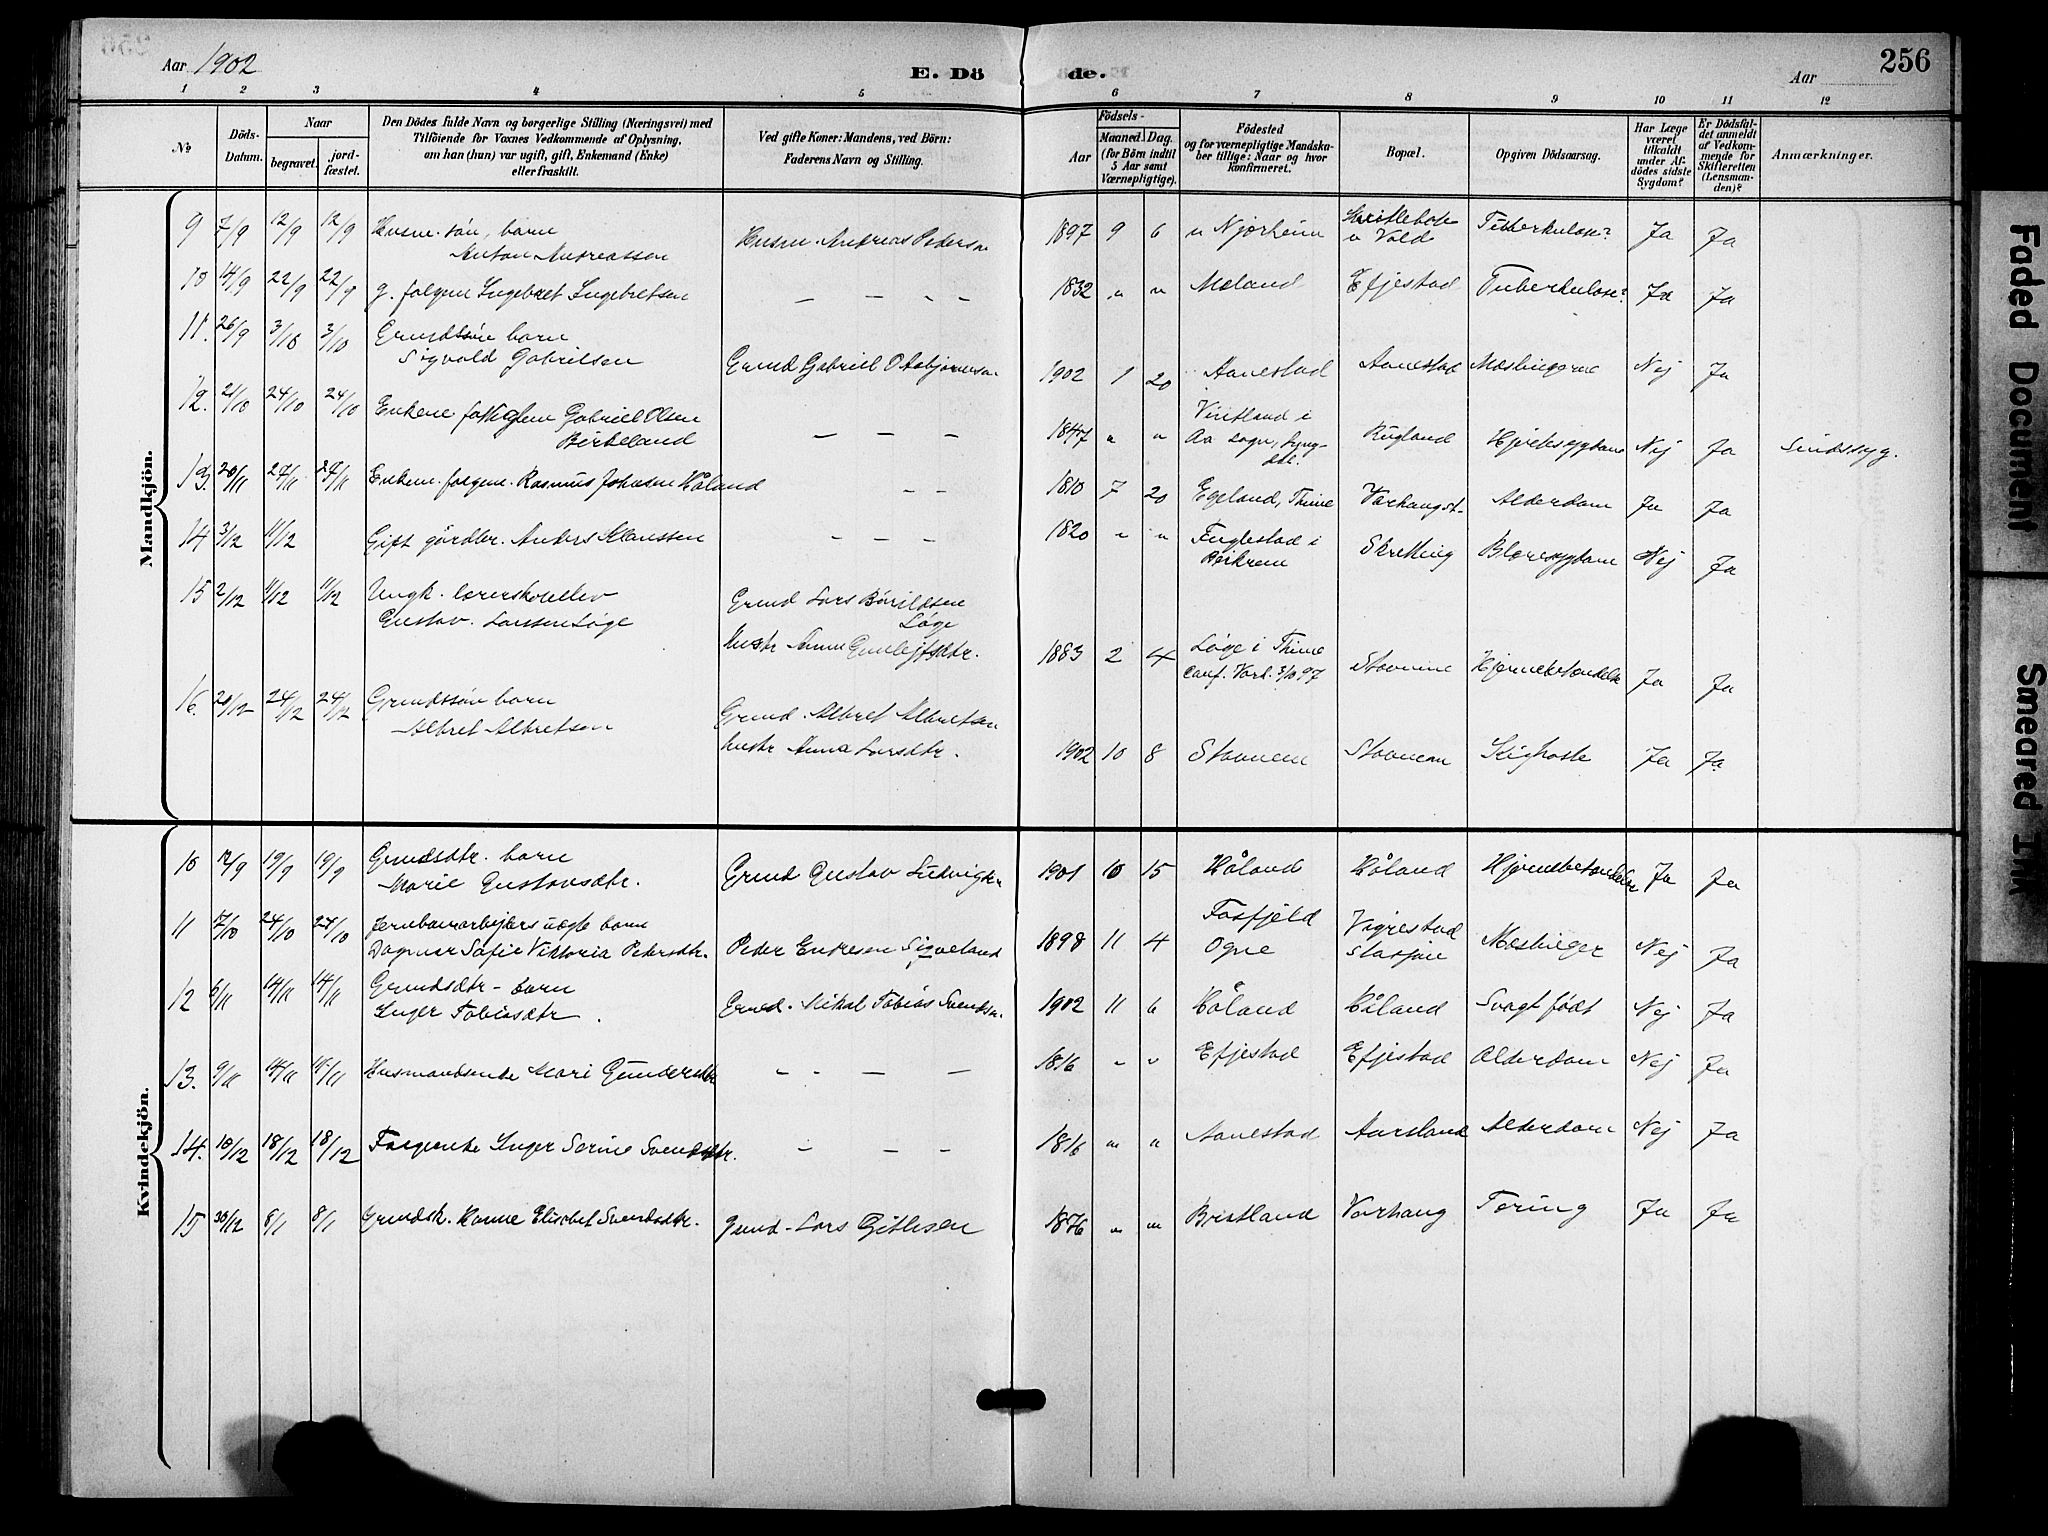 Aar 1902
E. Döde.
Aar
256
1 2 3 4 5 6 7 8 9 10 11 12
No
Döds-Datum.
Naar
begravet.
jordfæstet.
Den Dödes fulde Navn og borgerlige Stilling (Næringsvei) med
Tilföiende for Voxnes Vedkommende af Oplysning,
om han (hun) var ugift, gift, Enkemand (Enke)
eller fraskilt.
Ved gifte Koner: Mandens, ved Börn:
Faderens Navn og Stilling.
Födsels-
Aar
Maaned. Dag.
(for Börn indtil
5 Aar samt
Værnepligtige).
Födested
og for værnepligtige Mandskaber tillige: Naar og hvor
konfirmeret.
Bopæl.
Opgiven Dödsaarsag.
Har Læge
været
tilkaldt
under Afdödes sidste
Sygdom?
Er Dödsfaldet anmeldt
af Vedkommende for
Skifteretten
(Lensmanden)?
Anmærkninger.
Mandkjön.
9 7/9 12/9 12/9 Husm. søn, barn
Anton Andreassen
Husm. Andreas Pedersen
1897 9 6 Njorheim
Vold
Tuberkulose? Ja Ja
10 14/9 22/9 22/9 g. folgem Ingebret Ingebretsen
— — — —
1832 " " Moland Efjestad Tuberkulose? Ja Ja
11. 26/9 3/10 3/10 Grundssøn barn
Sigvald Gabrielsen
Grmd Gabriel O Asbjørnsen
1902 1 20 Aanestad Aanestad Mæslingerne Nej Ja
12. 21/10 24/10 24/10 Enkem. Gabriel Olsen
Birkeland
— — —
1847 " " Vintland i
Aa sogn, Lyngdal.
Rugland Hjertesygdom Nej Ja Sindssyg.
13. 20/11 27/11 27/11 Enkem. folgem. Rasmus Johnsen Håland
— —
1810 7 20 Egeland, Thime Varhaugst. Alderdom Ja Ja
14 3/12 11/12 Gift gårdbr. Anders Klaussen
— — —
1820 " " Fuglestad i
Bjerkrem
Skretting Blæresygdom Nej Ja
15 2/12 11/12 11/12 Ungk. lærerskoleelev
Gustav. Larssen Løge
Grmd Lars Bårildsen
Løge
hustr Anna
1883 2 4 Løge i Thime
Conf. Varh. 3/10 97
Stavnem Hjernebetændelse Ja Ja
16. 20/12 24/12 24/12 Grundssøn barn
Albret Albretsen
Grmd. Albret Albretsen
hustr Anna Larsdtr.
1902 10 8 Stavnem Stavnem Kighoste Ja Ja
Kvindekjön.
10 12/9 19/9 19/9 Grundsdtr. barn
Marie Gustavsdtr.
Grmd Gustav Ludvigsen
1901 10 15 Håland Håland Hjernebetændelse Ja Ja
11 17/10 24/10 24/10 Jernbanearbejders uægte barn
Dagmar Sofie Viktoria Pedersdtr.
Peder Endresen Sigveland
1898 11 4 Fosfjeld
Ogne
Vigrestad
Stasjon
Meslinger Nej Ja
12 6/11 14/11 14/11 Grundsdtr - barn
Inger Tobiasdtr.
Grmd. Mikal Tobias Svendsen.
1902 11 6 Håland Håland Svagt født Nej Ja
13. 9/11 15/11 15/11 Husmandsenke Mari Gundersdtr
— — — —
1816 " " Efjestad Efjestad Alderdom Nej Ja
14. 10/12 18/12 18/12 Folgeenke Inger Serine Svendsdtr.
— — —
1816 " " Aanestad Aarsland Alderdom Nej Ja
15 30/12 8/1 8/1 Grmdsk. Hanne Elisabet Svendsdtr.
Grmd - Lars Gitlesen
1876 " " Bristland Varhaug Tæring Ja Ja
Faded Document
Smeared Ink